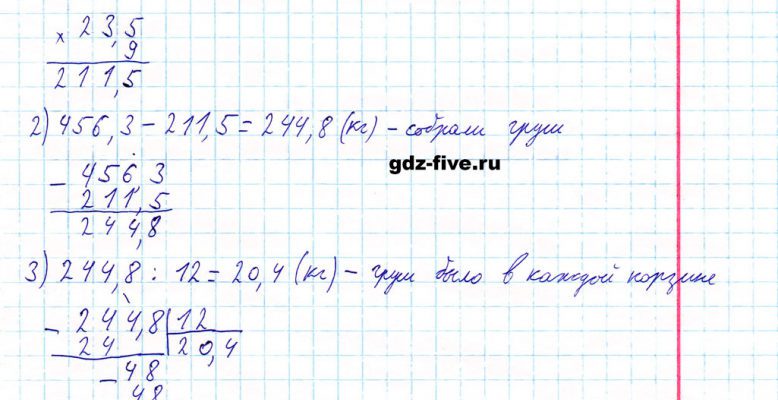 × 23,5
9
211,5
2) 456,3 – 211,5 = 244,8 (кг) – собрали груш
gdz-five.ru
– 456 3
211,5
244,8
3) 244,8 : 12 = 20,4 (кг) – груш было в каждой корзине
– 244,8 | 12
24 20,4
– 48
48